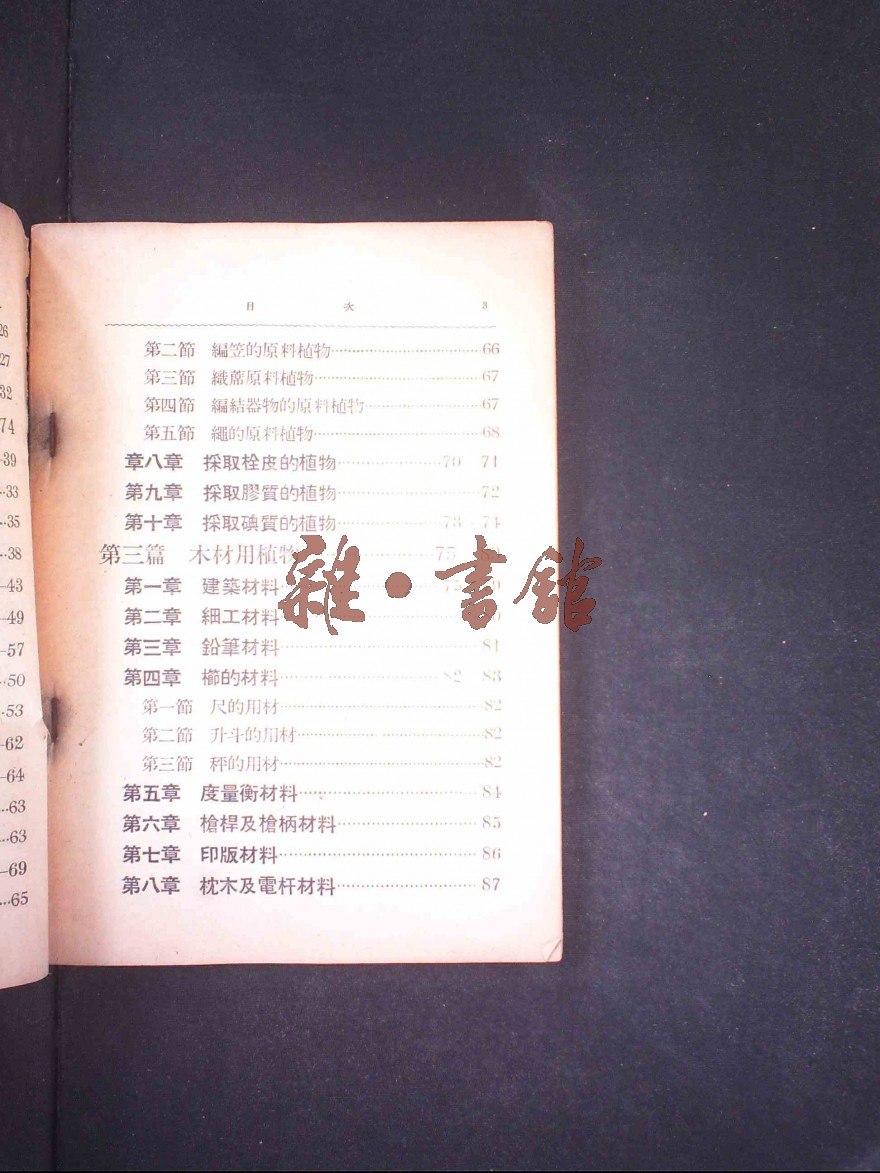 26
27
32
74
-39
..33
..35
..38
-43
-49
-57
..50
..53
-62
-64
..63
..63
-69
..65
目 次 3
第二節 編笠的原料植物……66
第三節 織蓆原料植物……67
第四節 編結器物的原料植物……67
第五節 繩的原料植物……68
章八章 採取栓皮的植物……70 71
第九章 採取膠質的植物……72
第十章 採取碘質的植物……73 74
第三篇 木材用植物……75
第一章 建築材料……75
第二章 細工材料……
第三章 鉛筆材料……81
第四章 櫛的材料……82 83
第一節 尺的用材……82
第二節 升斗的用材……82
第三節 秤的用材……82
第五章 度量衡材料……84
第六章 槍桿及槍柄材料……85
第七章 印版材料……86
第八章 枕木及電杆材料……87
雜·書館